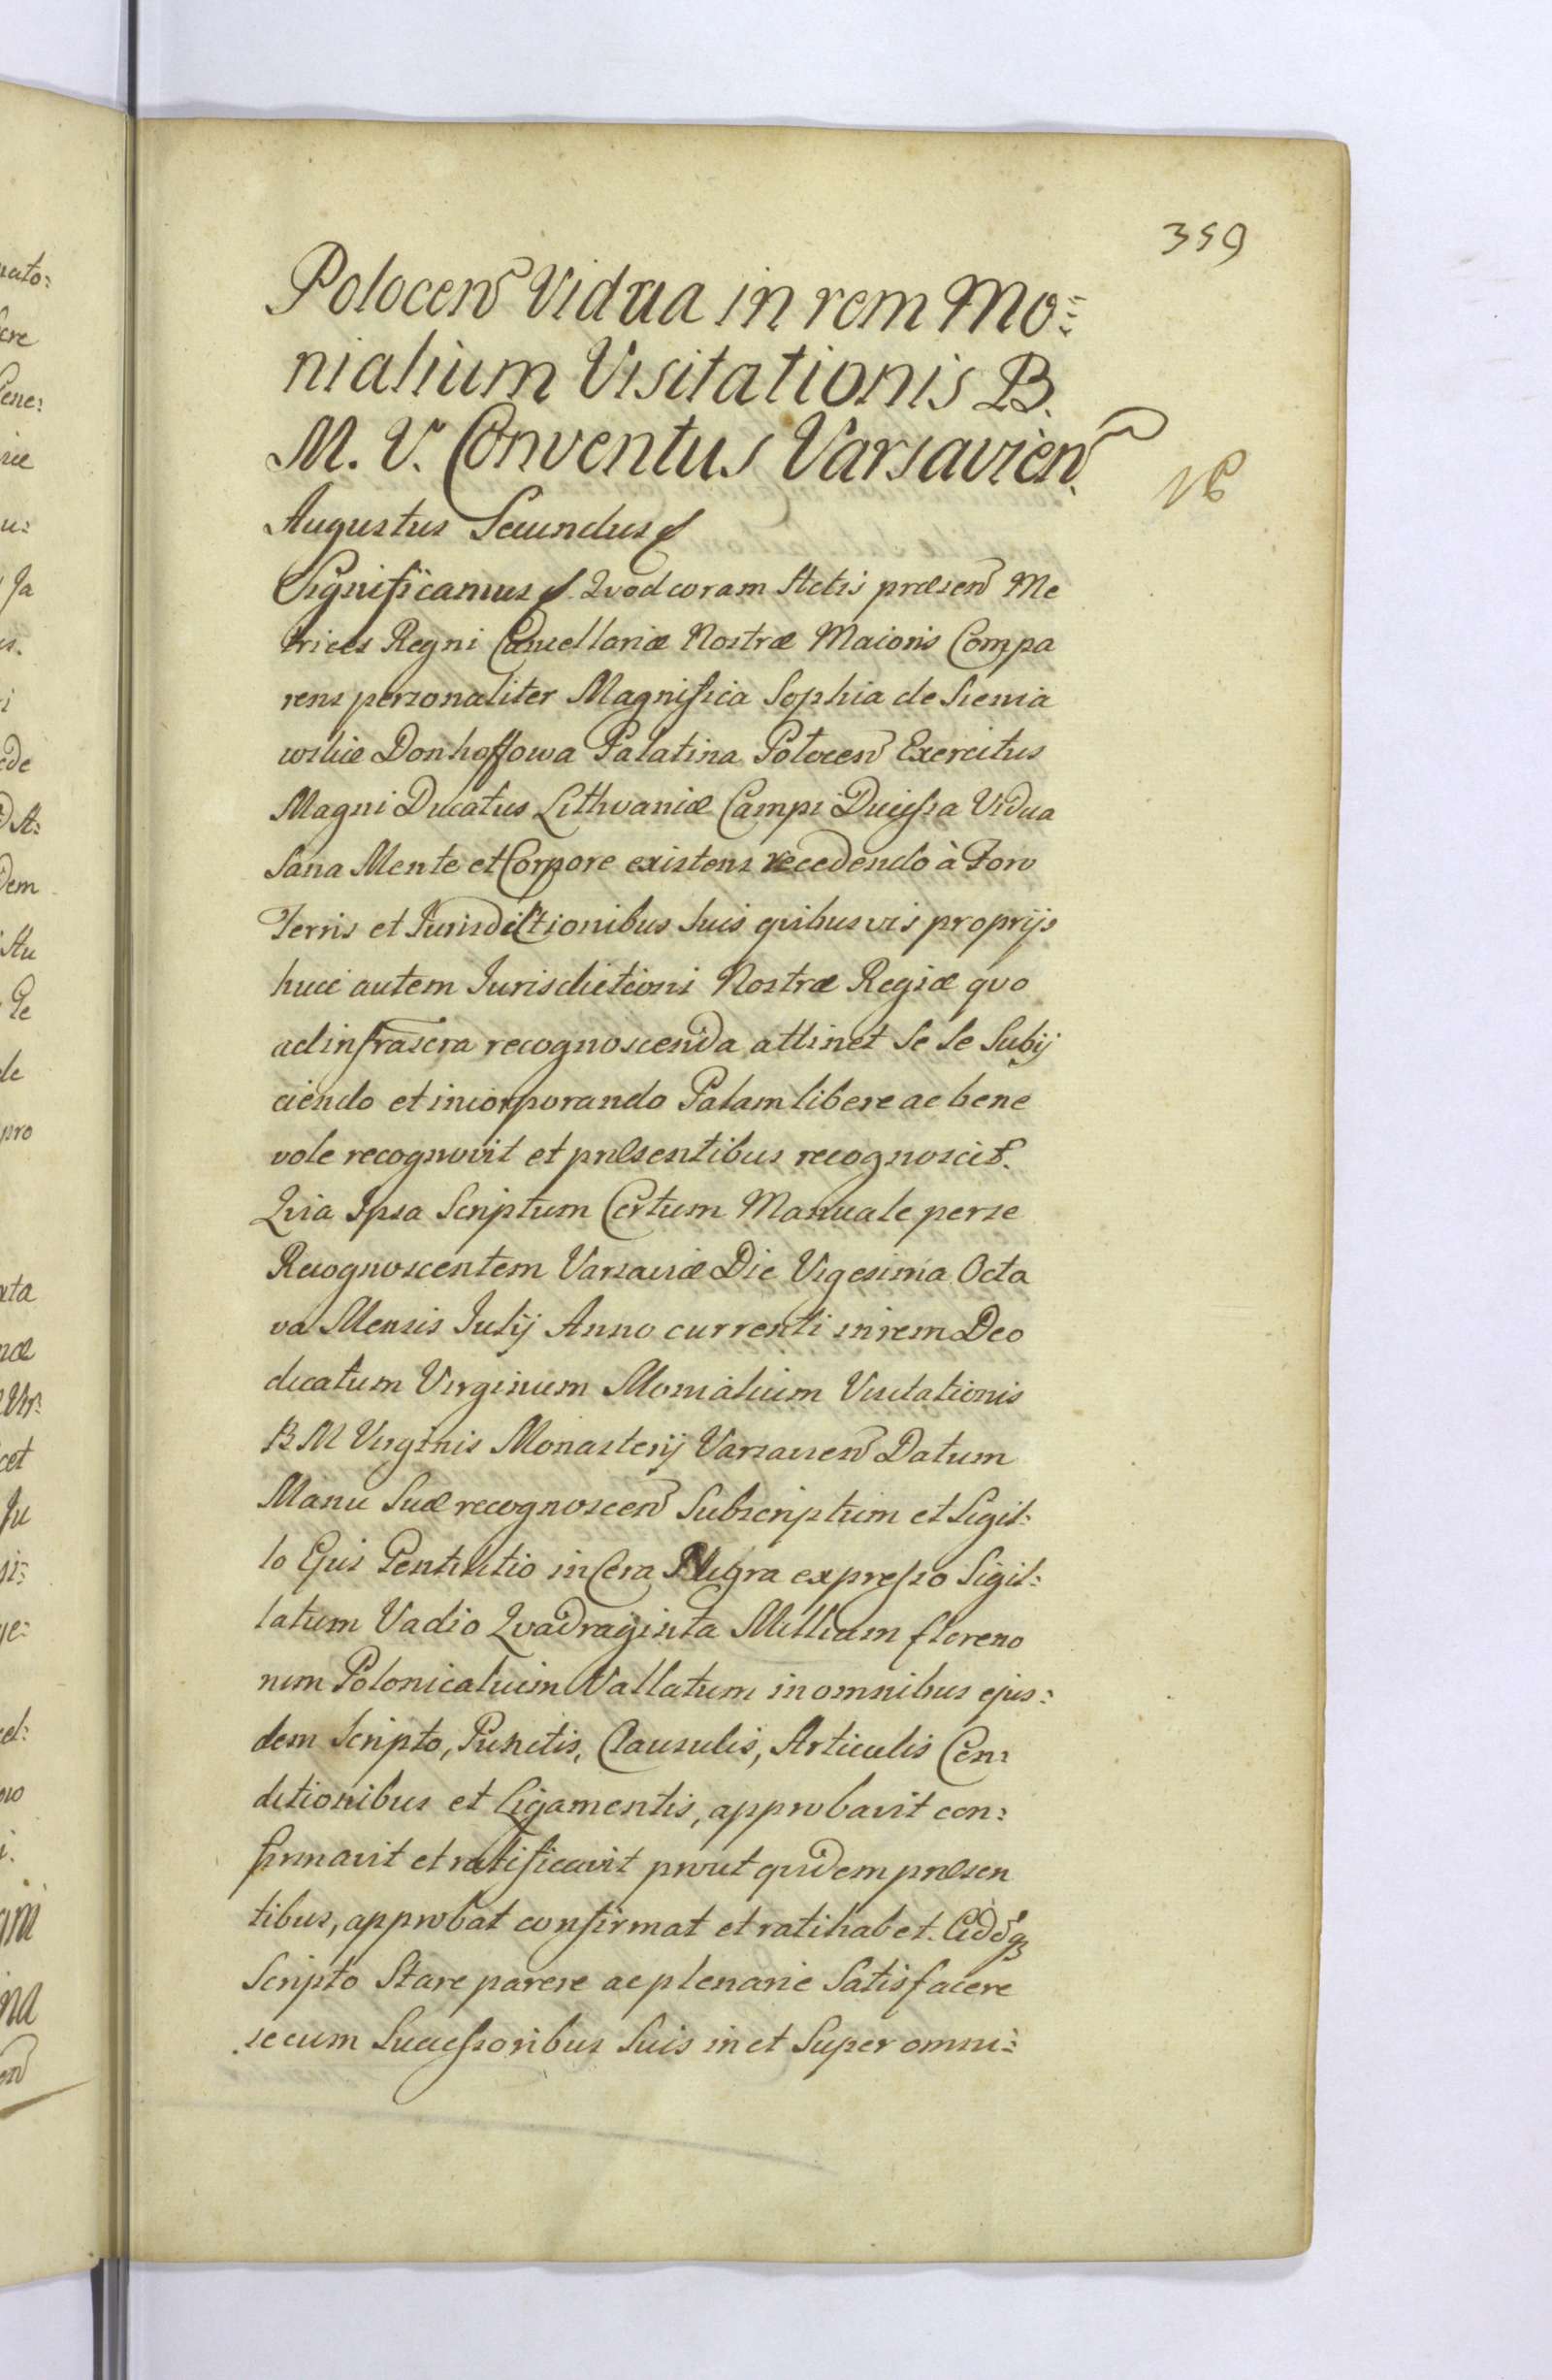 359
Polocen Vidua in rem Mo=
nialium Visitationis B.
M. V. Conventus Varsavien.
NB
Augustus Secundus
Significamus Qvod coram Actis præsen Me
trices Regni Cancellariæ Nostræ Maioris Compa
rens personaliter Magnifica Sophia de Sienia
wskie Donhoffowa Palatina Polocen Exercitus
Magni Ducatus Lithvaniæ Campi Ducissa Vidua
Sana Mente et Corpore existens recedendo à Foro
Terris et Jurisdictionibus Suis qvibusvis proprijs
huic autem Jurisdictioni Nostræ Regiæ qvo
ad infrascra recognoscenda attinet Se Se Subij
ciendo et incorporando Palam libere ac bene
vole recognovit et præsentibus recognoscit.
Qvia Ipsa Scriptum Certum Manuale per se
Recognoscentem Varsaviæ Die Vigesima Octa
va Mensis Julij Anno currenti in rem Deo
dicatum Virginum Monialium Visitationis
B M Virginis Monasterij Varsavien Datum
Manu Suæ recognoscen Subscriptum et Sigil:
lo Ejus Gentilitio in Cera Nigra expresso Sigil:
latum Vadio Qvadraginta Millium floreno
rum Polonicalium Vallatum in omnibus ejus:
dem Scripto, Punctis, Clausulis, Articulis Con:
ditionibus et Ligamentis, approbavit con:
firmavit et ratificavit prout qvidem præsen
tibus, approbat confirmat et ratihabet.
Scripto Stare parere ac plenarie Satisfacere
se cum Successoribus Suis in et Super omni: